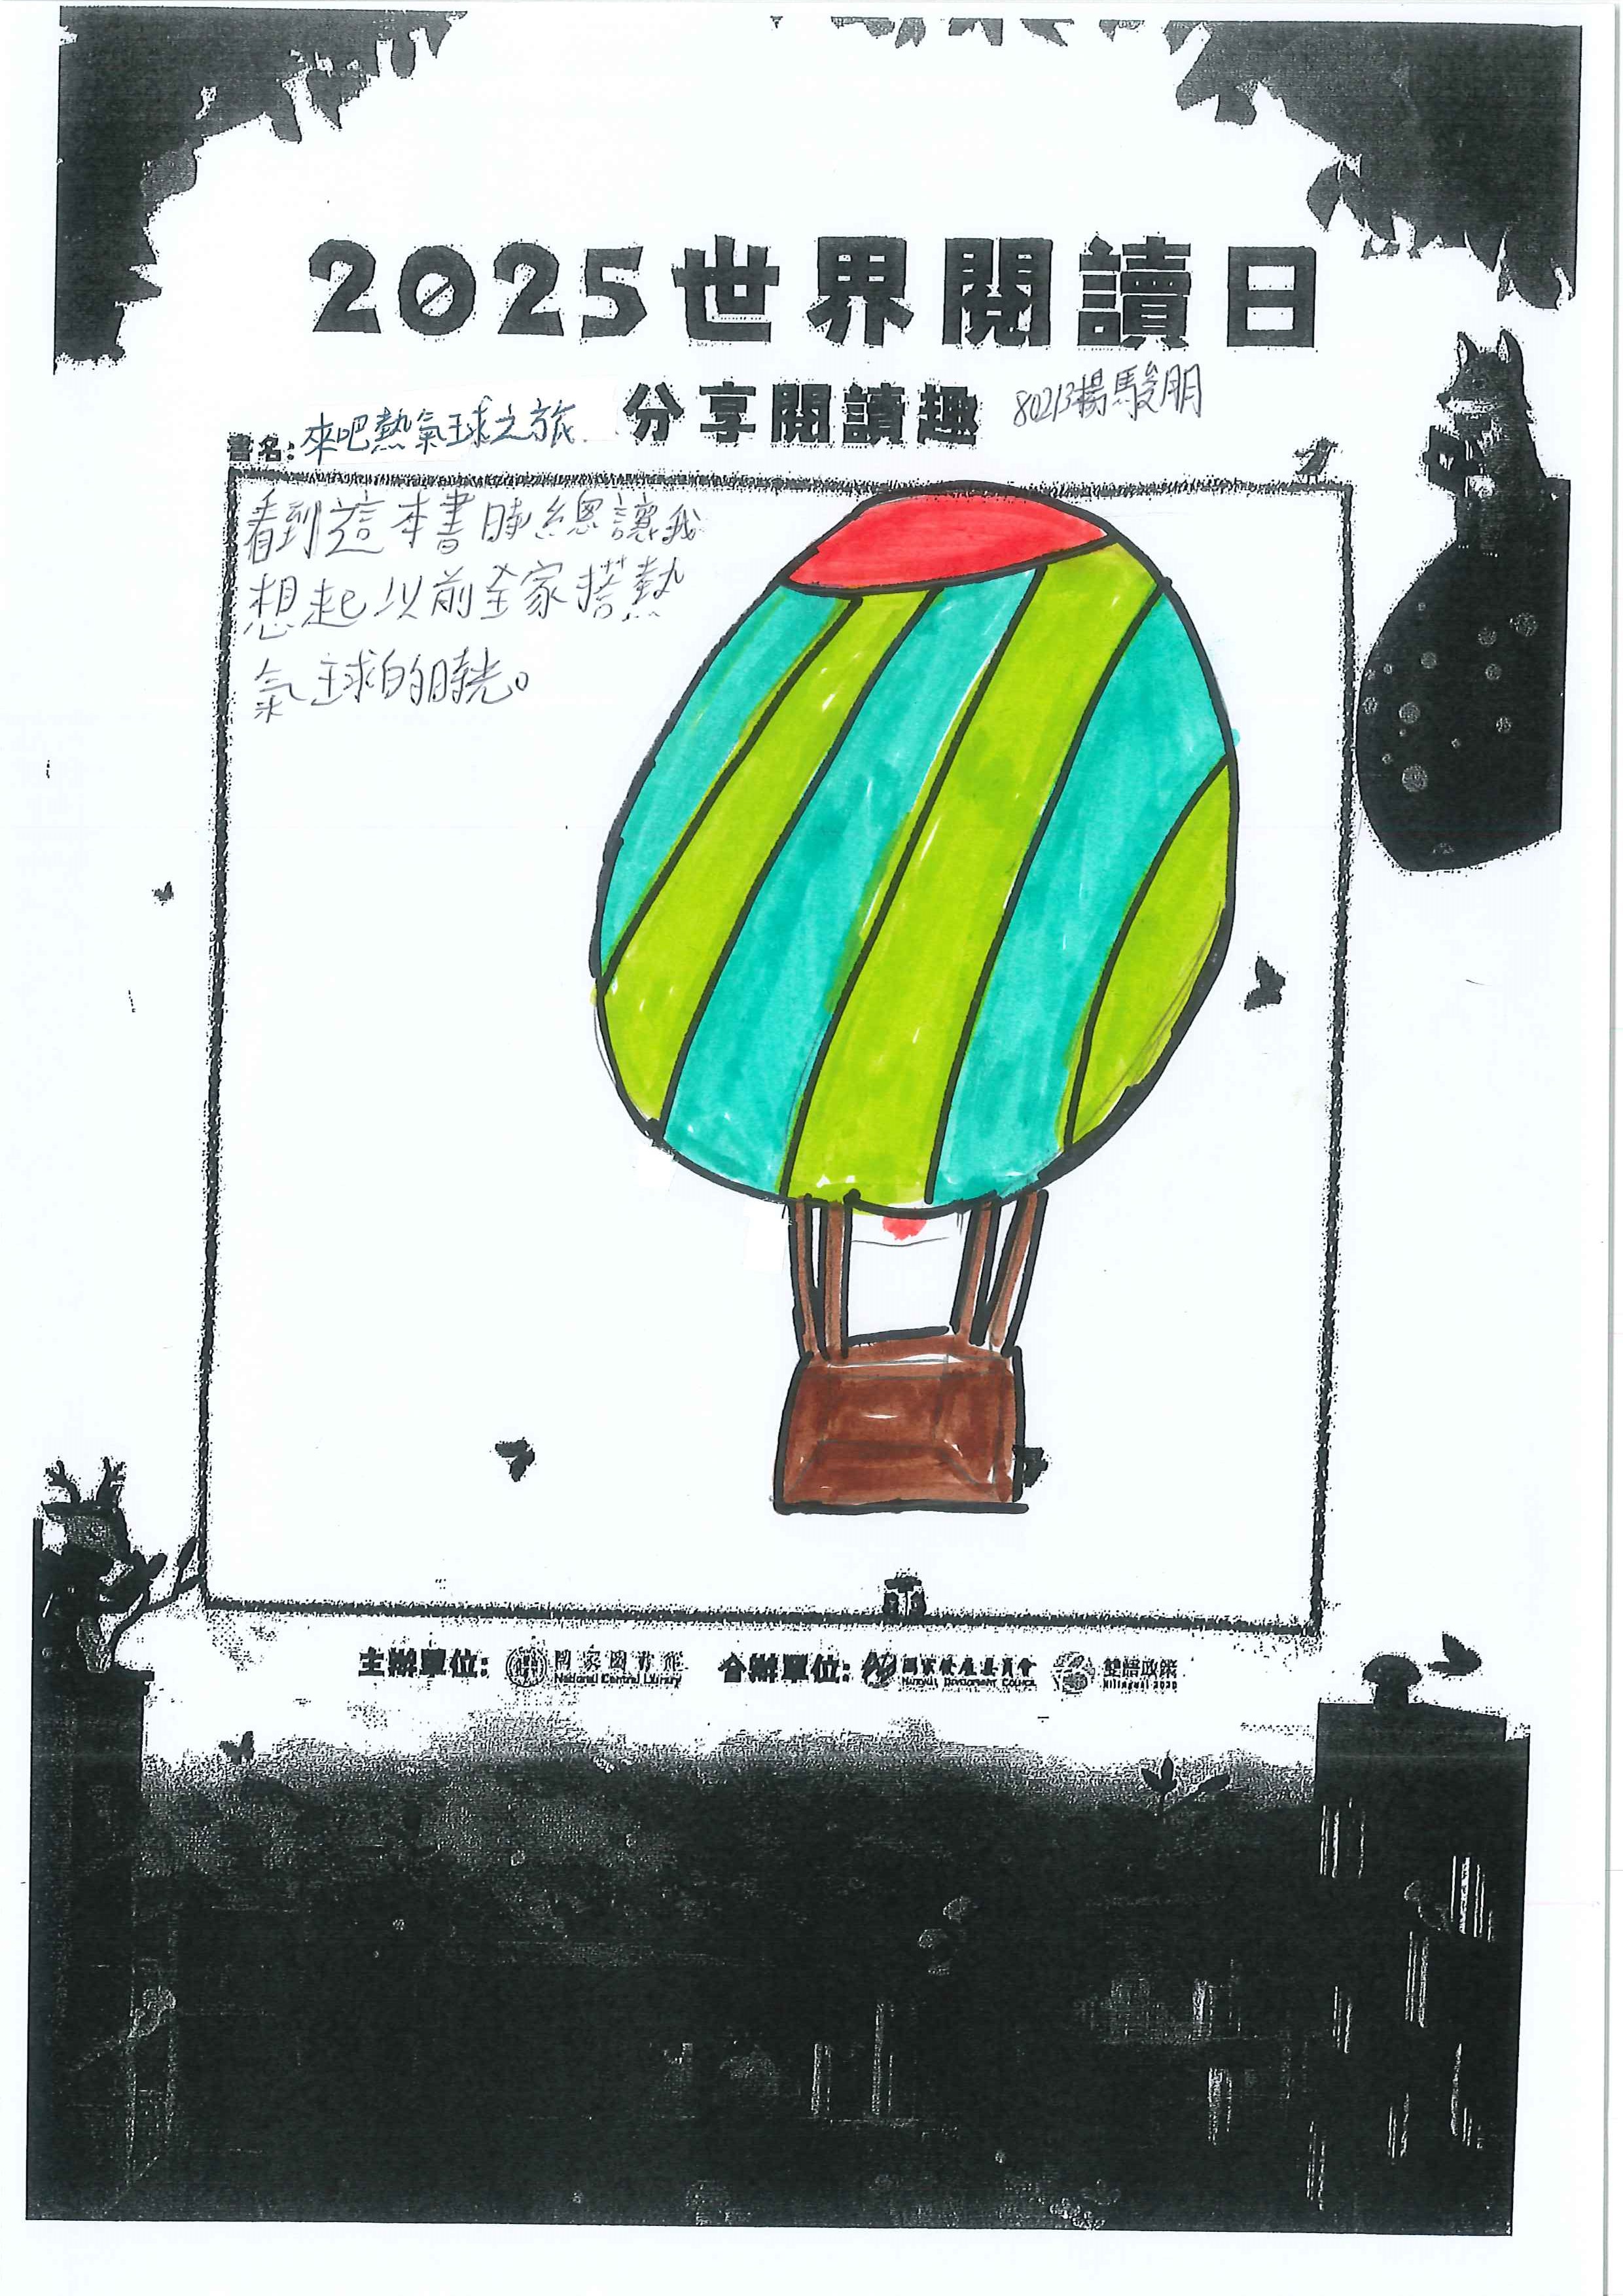 2025世界閱讀日
分享閱讀趣
80213楊駿朋
書名:來吧熱氣球之旅
看到這本書時總讓我
想起以前全家搭熱
氣球的時光。
主辦單位: 國家圖書館 National Central Library 合辦單位: 國家發展委員會 National Development Council 雙語政策 Bilingual 2030